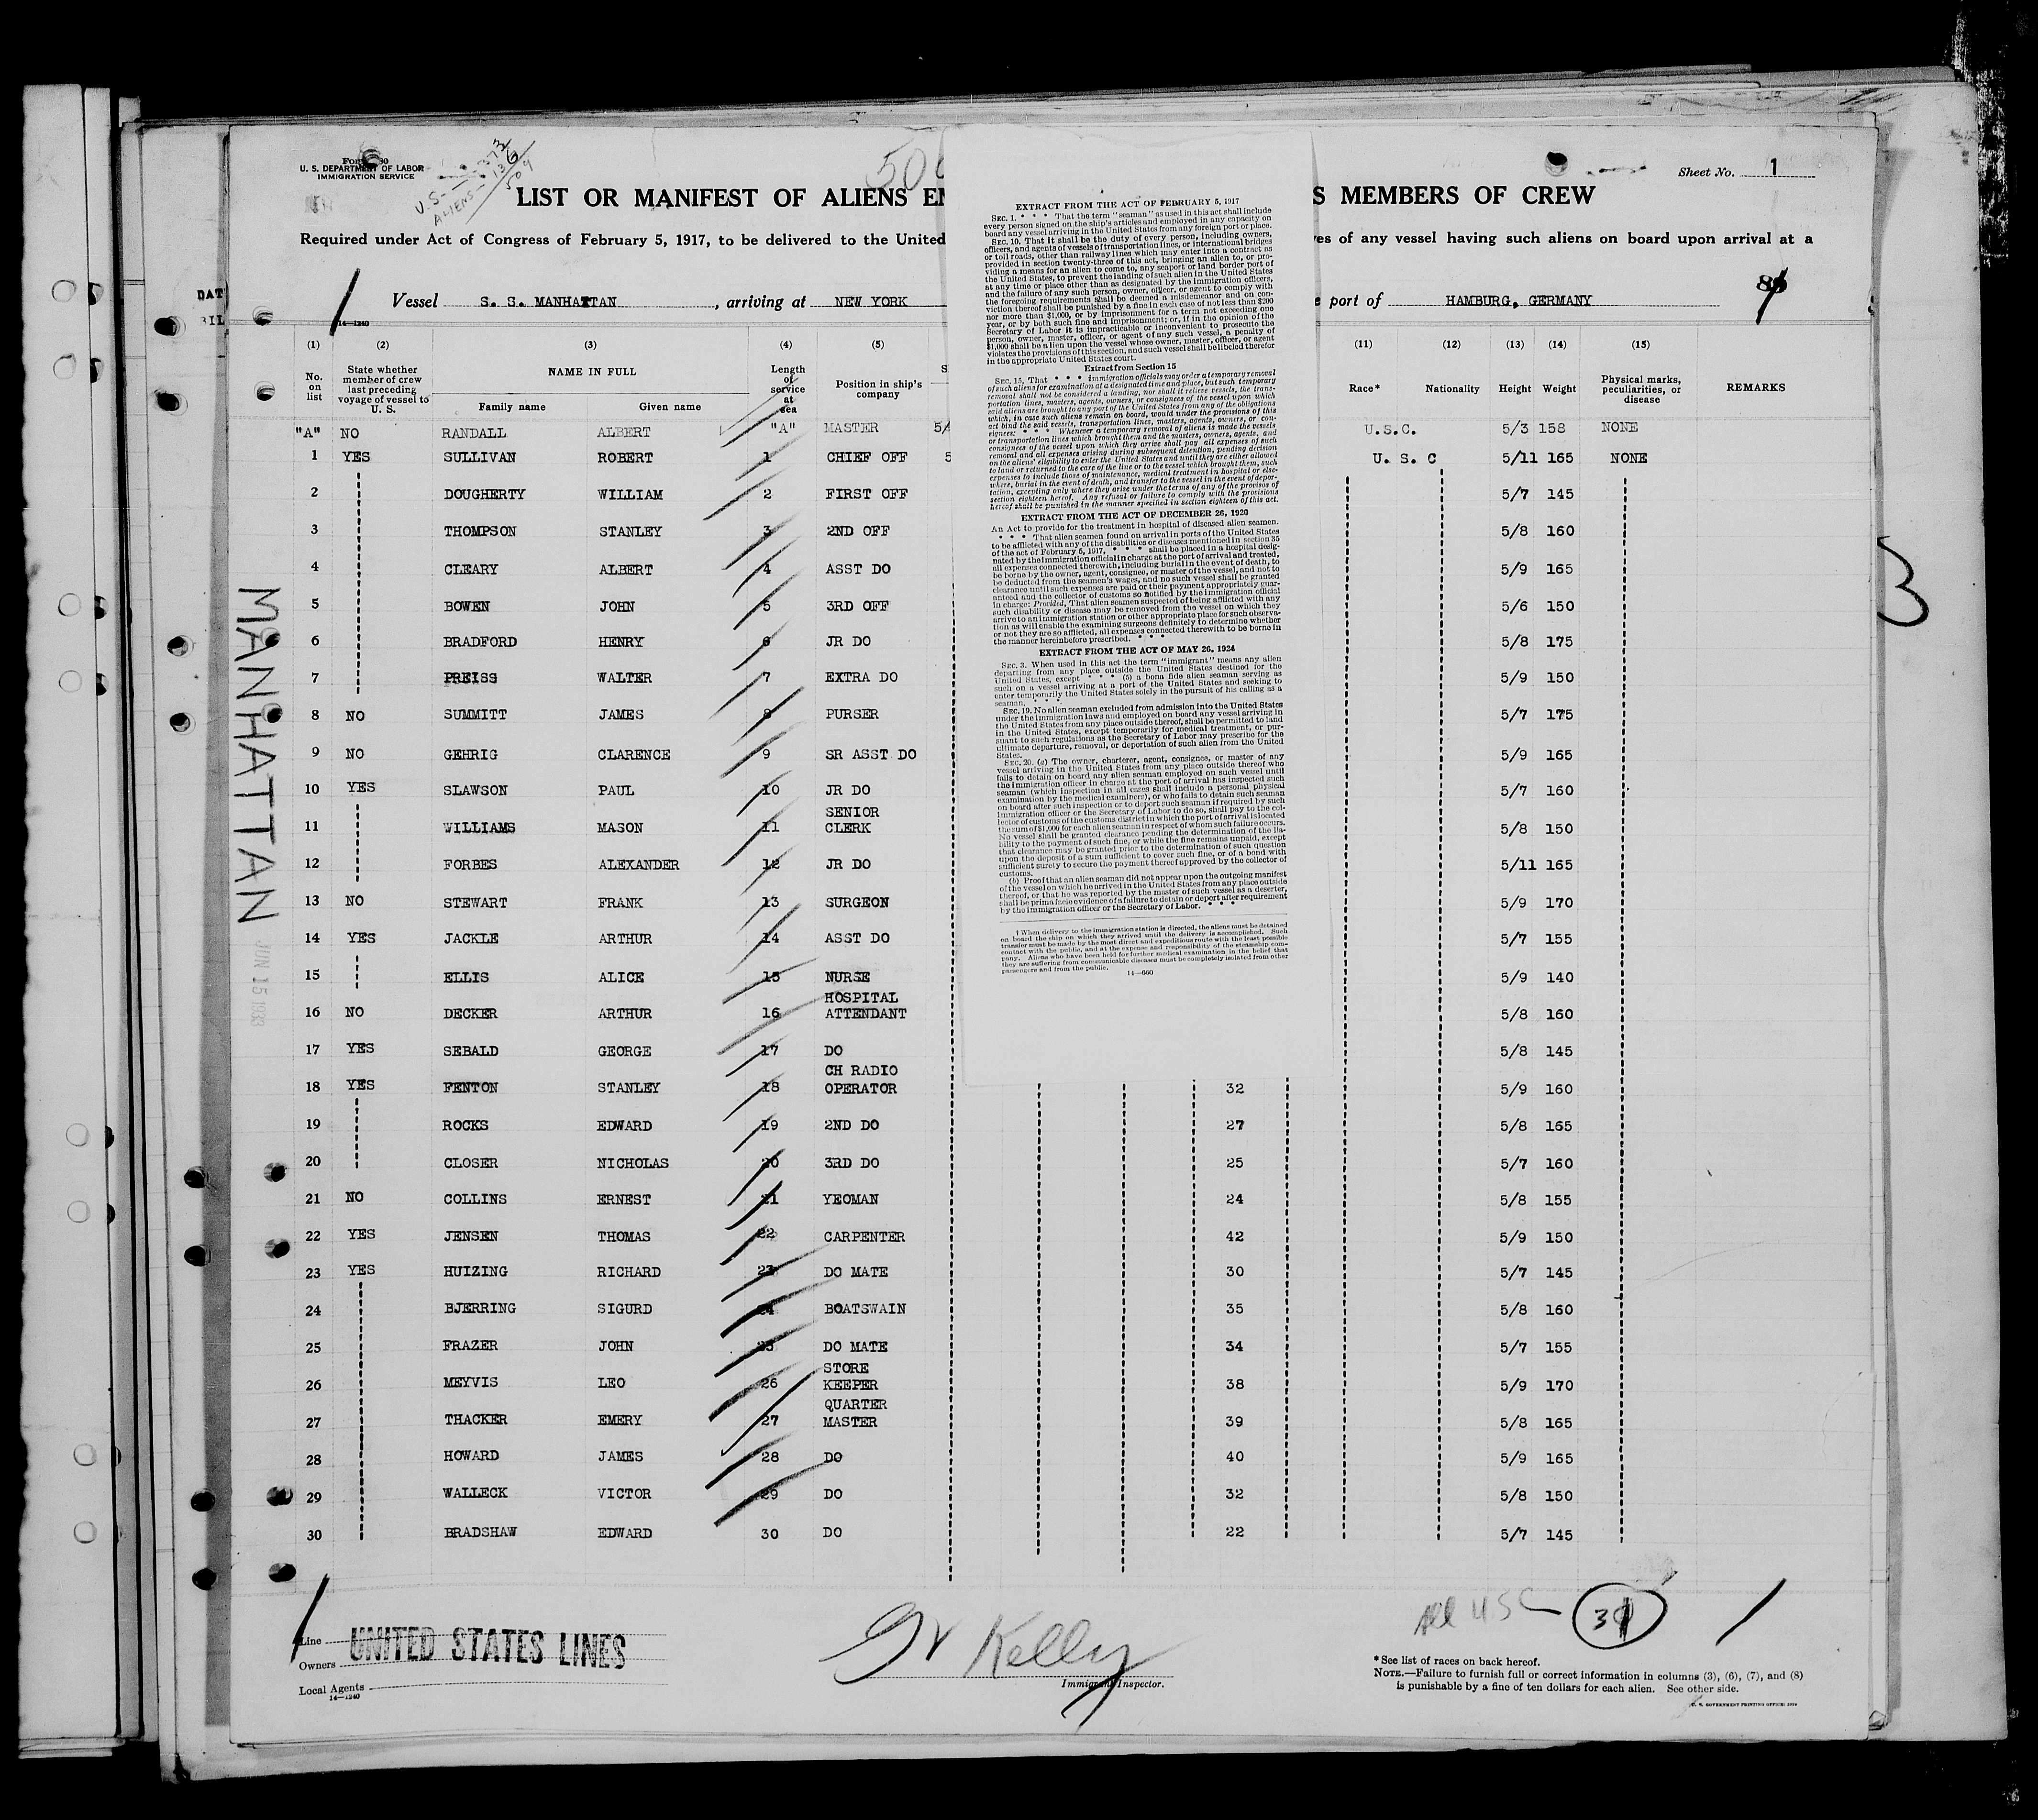 Form 680
U. S. DEPARTMENT OF LABOR
IMMIGRATION SERVICE
U.S. - 373
ALIENS - 136
509
509
Sheet No. 1
LIST OR MANIFEST OF ALIENS EM
S MEMBERS OF CREW
Required under Act of Congress of February 5, 1917, to be delivered to the United
es of any vessel having such aliens on board upon arrival at a
Vessel S. S. MANHATTAN, arriving at NEW YORK
port of HAMBURG, GERMANY
14—1240
(1) (2) (3) (4) (5) (11) (12) (13) (14) (15)
No. on list
State whether member of crew last preceding voyage of vessel to U. S.
NAME IN FULL
Family name Given name
Length of service at sea
Position in ship's company
Race* Nationality Height Weight
Physical marks, peculiarities, or disease
REMARKS
"A" NO RANDALL ALBERT "A" MASTER U.S.C. 5/3 158 NONE
1 YES SULLIVAN ROBERT 1 CHIEF OFF 5 U. S. C 5/11 165 NONE
2 DOUGHERTY WILLIAM 2 FIRST OFF 5/7 145
3 THOMPSON STANLEY 3 2ND OFF 5/8 160
4 CLEARY ALBERT 4 ASST DO 5/9 165
5 BOWEN JOHN 5 3RD OFF 5/6 150
6 BRADFORD HENRY 6 JR DO 5/8 175
7 PREISS WALTER 7 EXTRA DO 5/9 150
8 NO SUMMITT JAMES 8 PURSER 5/7 175
9 NO GEHRIG CLARENCE 9 SR ASST DO 5/9 165
10 YES SLAWSON PAUL 10 JR DO 5/7 160
11 WILLIAMS MASON 11 SENIOR CLERK 5/8 150
12 FORBES ALEXANDER 12 JR DO 5/11 165
13 NO STEWART FRANK 13 SURGEON 5/9 170
14 YES JACKLE ARTHUR 14 ASST DO 5/7 155
15 ELLIS ALICE 15 NURSE 5/9 140
16 NO DECKER ARTHUR 16 HOSPITAL ATTENDANT 5/8 160
17 YES SEBALD GEORGE 17 DO 5/8 145
18 YES FENTON STANLEY 18 CH RADIO OPERATOR 32 5/9 160
19 ROCKS EDWARD 19 2ND DO 27 5/8 165
20 CLOSER NICHOLAS 20 3RD DO 25 5/7 160
21 NO COLLINS ERNEST 21 YEOMAN 24 5/8 155
22 YES JENSEN THOMAS 22 CARPENTER 42 5/9 150
23 YES HUIZING RICHARD 23 DO MATE 30 5/7 145
24 BJERRING SIGURD 24 BOATSWAIN 35 5/8 160
25 FRAZER JOHN 25 DO MATE 34 5/7 155
26 MEYVIS LEO 26 STORE KEEPER 38 5/9 170
27 THACKER EMERY 27 QUARTER MASTER 39 5/8 165
28 HOWARD JAMES 28 DO 40 5/9 165
29 WALLECK VICTOR 29 DO 32 5/8 150
30 BRADSHAW EDWARD 30 DO 22 5/7 145
EXTRACT FROM THE ACT OF FEBRUARY 5, 1917
SEC. 1. * * * That the term "seaman" as used in this act shall include
every person signed on the ship's articles and employed in any capacity on
board any vessel arriving in the United States from any foreign port or place.
SEC. 10. That it shall be the duty of every person, including owners,
officers, and agents of vessels of transportation lines, or international bridges
or toll roads, other than railway lines which may enter into a contract as
provided in section twenty-three of this act, bringing an alien to, or pro-
viding a means for an alien to come to, any seaport or land border port of
the United States, to prevent the landing of such alien in the United States
at any time or place other than as designated by the immigration officers,
and the failure of any such person, owner, officer, or agent to comply with
the foregoing requirements shall be deemed a misdemeanor and on con-
viction thereof shall be punished by a fine in each case of not less than $200
nor more than $1,000, or by imprisonment for a term not exceeding one
year, or by both such fine and imprisonment; or, if in the opinion of the
Secretary of Labor it is impracticable or inconvenient to prosecute the
person, owner, master, officer, or agent of any such vessel, a penalty of
$1,000 shall be a lien upon the vessel whose owner, master, officer, or agent
violates the provisions of this section, and such vessel shall be libeled therefor
in the appropriate United States court.
Extract from Section 15
SEC. 15. That * * * immigration officials may order a temporary removal
of such aliens for examination at a designated time and place, but such temporary
removal shall not be considered a landing, nor shall it relieve vessels, the trans-
portation lines, masters, agents, owners, or consignees of the vessel upon which
said aliens are brought to any port of the United States from any of the obligations
which, in case such aliens remain on board, would under the provisions of this
act bind the said vessels, transportation lines, masters, agents, owners, or con-
signees: * * * Whenever a temporary removal of aliens is made the vessels
or transportation lines which brought them and the masters, owners, agents, and
consignees of the vessel upon which they arrive shall pay all expenses of such
removal and all expenses arising during subsequent detention, pending decision
on the aliens' eligibility to enter the United States and until they are either allowed
to land or returned to the care of the line or to the vessel which brought them, such
expenses to include those of maintenance, medical treatment in hospital or else-
where, burial in the event of death, and transfer to the vessel in the event of depor-
tation, excepting only where they arise under the terms of any of the provisos of
section eighteen hereof. Any refusal or failure to comply with the provisions
hereof shall be punished in the manner specified in section eighteen of this act.
EXTRACT FROM THE ACT OF DECEMBER 26, 1920
An Act to provide for the treatment in hospital of diseased alien seamen.
* * * That alien seamen found on arrival in ports of the United States
to be afflicted with any of the disabilities or diseases mentioned in section 35
of the act of February 5, 1917, * * * shall be placed in a hospital desig-
nated by the immigration official in charge at the port of arrival and treated,
all expenses connected therewith, including burial in the event of death, to
be borne by the owner, agent, consignee, or master of the vessel, and not to
be deducted from the seamen's wages, and no such vessel shall be granted
clearance until such expenses are paid or their payment appropriately guar-
anteed and the collector of customs so notified by the immigration official
in charge: Provided, That alien seamen suspected of being afflicted with any
such disability or disease may be removed from the vessel on which they
arrive to an immigration station or other appropriate place for such observa-
tion as will enable the examining surgeons definitely to determine whether
or not they are so afflicted, all expenses connected therewith to be borne in
the manner hereinbefore prescribed. * * *
EXTRACT FROM THE ACT OF MAY 26, 1924
SEC. 3. When used in this act the term "immigrant" means any alien
departing from any place outside the United States destined for the
United States, except * * * (5) a bona fide alien seaman serving as
such on a vessel arriving at a port of the United States and seeking to
enter temporarily the United States solely in the pursuit of his calling as a
seaman. * * *
SEC. 19. No alien seaman excluded from admission into the United States
under the immigration laws and employed on board any vessel arriving in
the United States from any place outside thereof, shall be permitted to land
in the United States, except temporarily for medical treatment, or pur-
suant to such regulations as the Secretary of Labor may prescribe for the
ultimate departure, removal, or deportation of such alien from the United
States.
SEC. 20. (a) The owner, charterer, agent, consignee, or master of any
vessel arriving in the United States from any place outside thereof who
fails to detain on board any alien seaman employed on such vessel until
the immigration officer in charge at the port of arrival has inspected such
seaman (which inspection in all cases shall include a personal physical
examination by the medical examiners), or who fails to detain such seaman
on board after such inspection or to deport such seaman if required by such
immigration officer or the Secretary of Labor to do so, shall pay to the col-
lector of customs of the customs district in which the port of arrival is located
the sum of $1,000 for each alien seaman in respect of whom such failure occurs.
No vessel shall be granted clearance pending the determination of the lia-
bility to the payment of such fine, or while the fine remains unpaid, except
that clearance may be granted prior to the determination of such question
upon the deposit of a sum sufficient to cover such fine, or of a bond with
sufficient surety to secure the payment thereof approved by the collector of
customs.
(b) Proof that an alien seaman did not appear upon the outgoing manifest
of the vessel on which he arrived in the United States from any place outside
thereof, or that he was reported by the master of such vessel as a deserter,
shall be prima facie evidence of a failure to detain or deport after requirement
by the immigration officer or the Secretary of Labor. * * *
† When delivery to the immigration station is directed, the aliens must be detained
on board the ship on which they arrived until the delivery is accomplished. Such
transfer must be made by the most direct and expeditious route with the least possible
contact with the public, and at the expense and responsibility of the steamship com-
pany. Aliens who have been held for further medical examination in the belief that
they are suffering from communicable diseases must be completely isolated from other
passengers and from the public.
14—660
MANHATTAN
JUN 15 1933
3
Line
Owners UNITED STATES LINES
Local Agents
14—1240
Kelly
Immigrant Inspector.
All USC 31
*See list of races on back hereof.
NOTE.—Failure to furnish full or correct information in columns (3), (6), (7), and (8)
is punishable by a fine of ten dollars for each alien. See other side.